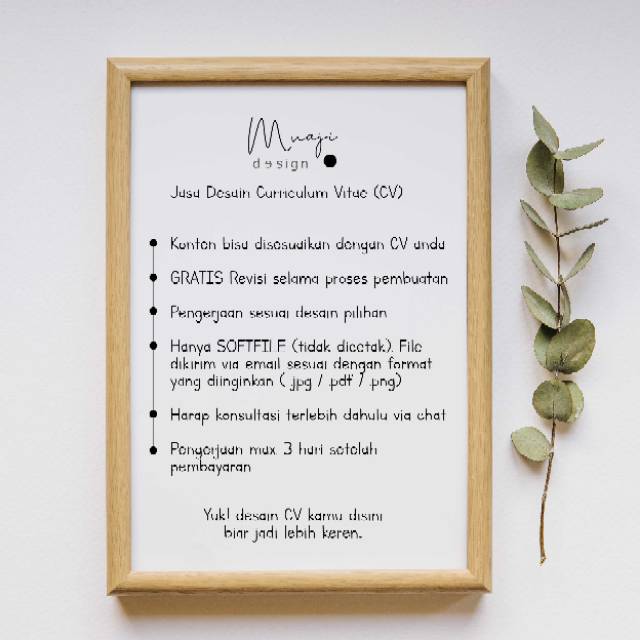 Muaji
design
Jasa Desain Curriculum Vitae (CV)
Konten bisa disesuaikan dengan CV anda
GRATIS Revisi selama proses pembuatan
Pengerjaan sesuai desain pilihan
Hanya SOFTFILE (tidak dicetak). File
dikirim via email sesuai dengan format
yang diinginkan (.jpg / .pdf / .png)
Harap konsultasi terlebih dahulu via chat
Pengerjaan max. 3 hari setelah
pembayaran
Yuk! desain CV kamu disini
biar jadi lebih keren.